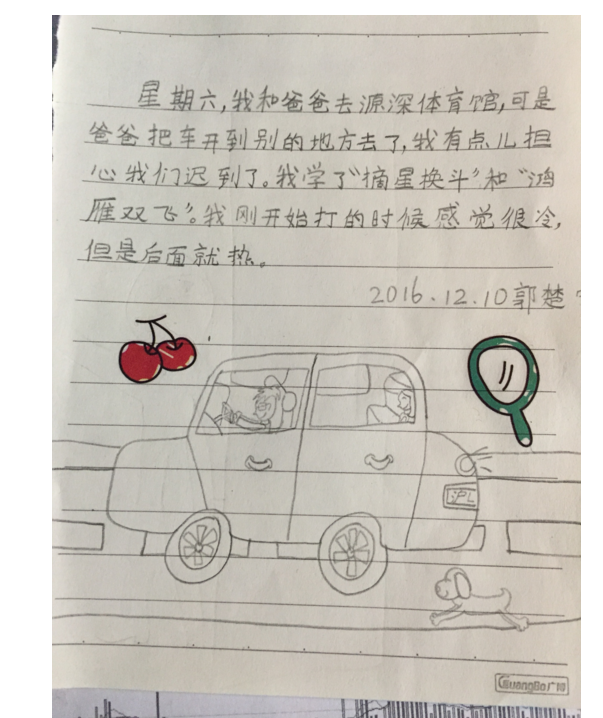 星期六,我和爸爸去源深体育馆,可是
爸爸把车开到别的地方去了,我有点儿担
心我们迟到了。我学了“摘星换斗”和“鸿
雁双飞”。我刚开始打的时候感觉很冷,
但是后面就热。
2016.12.10郭楚
沪L
GuangBo广博